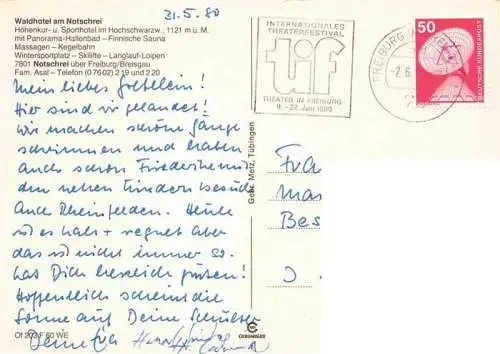 31.5.80
Waldhotel am Notschrei
Höhenkur- u. Sporthotel im Hochschwarzw., 1121 m ü. M.
mit Panorama-Hallenbad – Finnische Sauna
Massagen – Kegelbahn
Wintersportplatz – Skilifte – Langlauf-Loipen
7801 Notschrei über Freiburg/Breisgau
Fam. Asal – Telefon (0 76 02) 2 19 und 2 20
INTERNATIONALES
THEATERFESTIVAL
tif
THEATER IN FREIBURG
8.-22. Juni 1980
FREIBURG
-2.6.
50
DEUTSCHE BUNDESPOST
Mein liebes
Hier sind wir gelandet!
Wir machen schöne Gänge
schwimmen und haben
auch schon
den neben Kindern besucht
auch Rheinfelden. Heute
ist es kalt + regnet aber
das ist nicht immer so.
Lass Dich herzlich grüssen!
Hoffentlich scheint die
Sonne auf Deine
Deine
Gebr. Metz, Tübingen
Fra
Mar
Bes
D